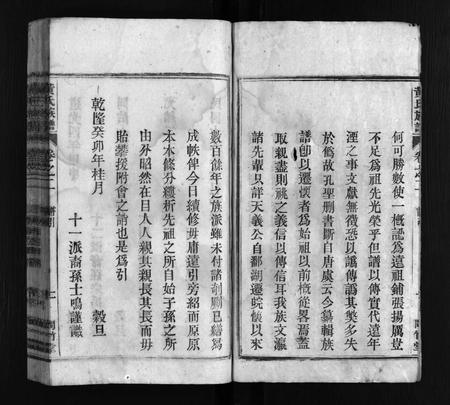 何可勝數使一概認爲遠祖鋪張揚厲豈
不足爲祖先光榮乎但譜以傳實代遠年
湮之事文獻無徵恐以譌傳譌其獘多失
於僞故孔聖刪書斷自唐虞云今纂輯族
譜以遷懷者爲始祖以前槪從畧焉蓋
取親盡則祧之義信以傳信耳我族文瀛
諸先輩只詳天義公自鄱湖遷皖懷以來
數百餘年之族派雖未付諸剞劂已繕爲
成帙俾今日續修毋庸遠引旁紹而原原
本本條分縷析先祖之所自始子孫之所
由分昭然在目人人親其親長其長而毋
貽攀援附會之誚也是爲引
乾隆癸卯年桂月 穀旦
十一派裔孫士鳴謹識
黃氏族譜
卷之二 譜引